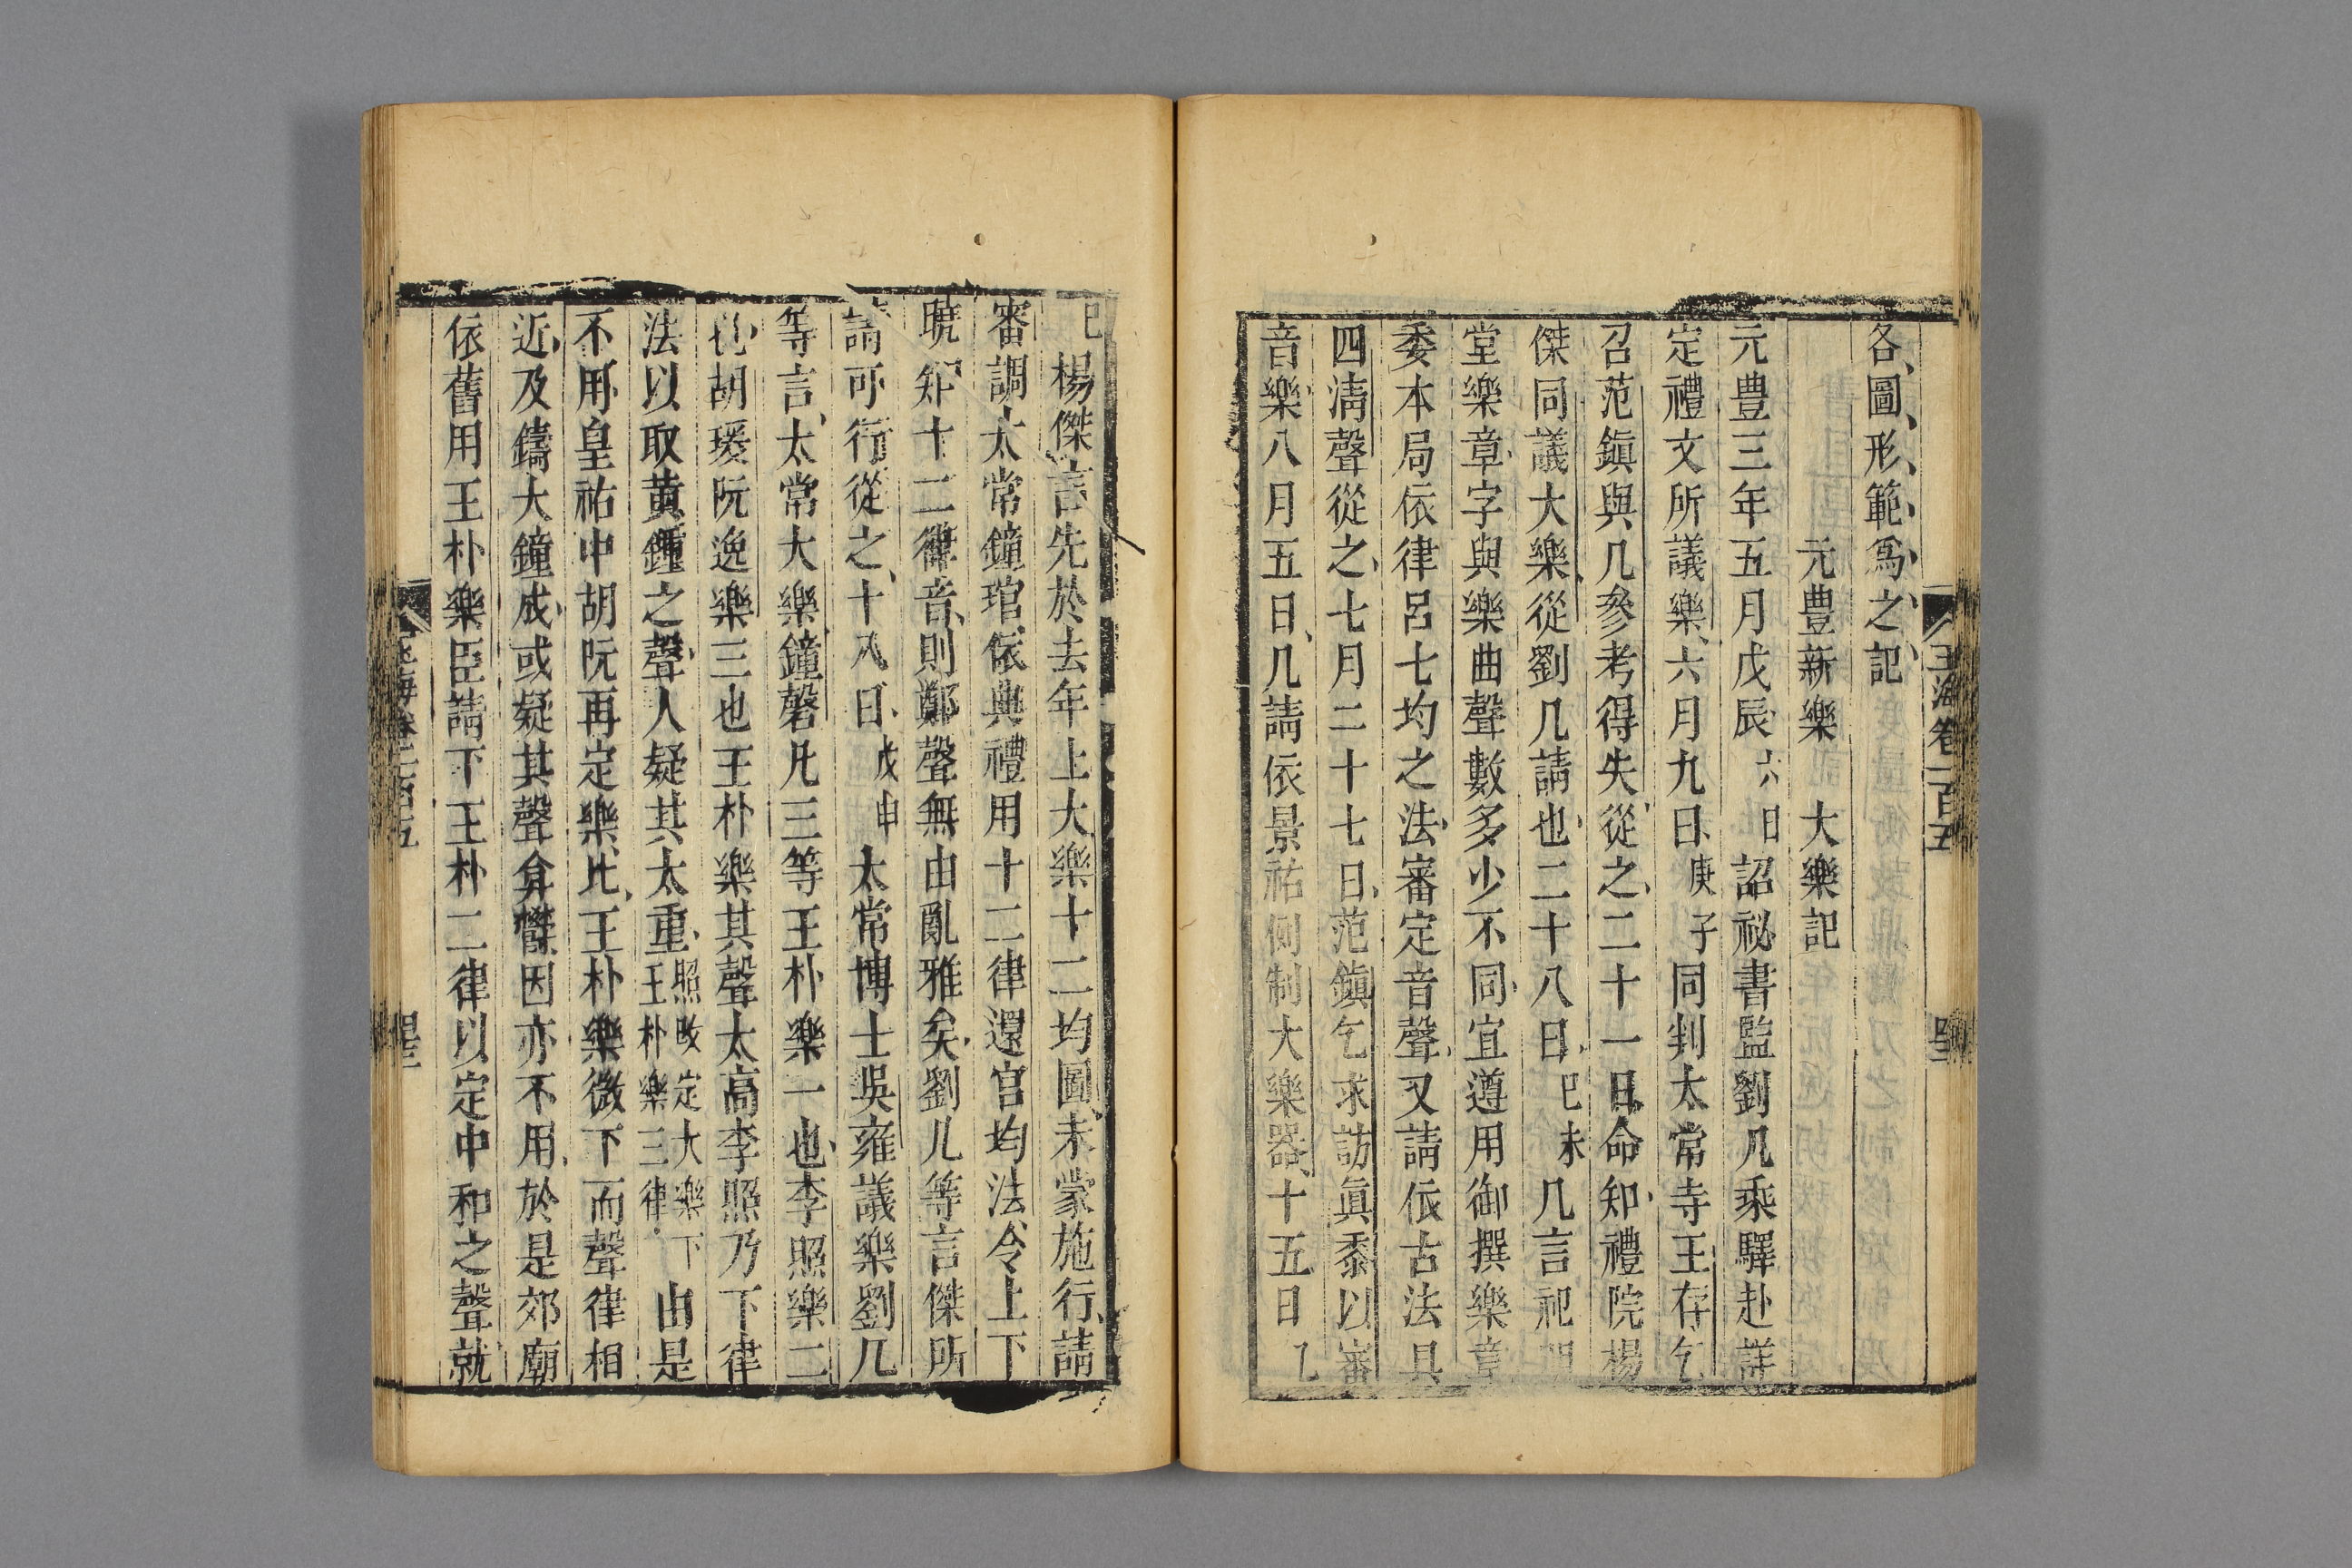 各圖形範爲之記
元豐新樂　大樂記
元豐三年五月戊辰六日詔祕書監劉几乘驛赴詳
定禮文所議樂六月九日庚子同判太常寺王存乞
召范鎭與几參考得失從之二十一日命知禮院楊
傑同議大樂從劉几請也二十八日己未几言祀明
堂樂章字與樂曲聲數多少不同宜遵用御撰樂章
委本局依律呂七均之法審定音聲又請依古法具
四淸聲從之七月二十七日范鎭乞求訪眞黍以審
音樂八月五日几請依景祐例制大樂器十五日乙
巳楊傑言先於去年上大樂十二均圖未蒙施行請
審調太常鐘琯依典禮用十二律還宮均法令上下
曉知十二律音則鄭聲無由亂雅矣劉几等言傑所
請可行從之十八日戊申太常博士吳雍議樂劉几
等言太常大樂鐘磬凡三等王朴樂一也李照樂二
也胡瑗阮逸樂三也王朴樂其聲太高李照乃下律
法以取黃鍾之聲人疑其太重照改定大樂下王朴樂三律由是
不用皇祐中胡阮再定樂比王朴樂微下而聲律相
近及鑄大鐘成或疑其聲弇鬱因亦不用於是郊廟
依舊用王朴樂臣請下王朴二律以定中和之聲就
玉海卷一百五
玉海卷一百五